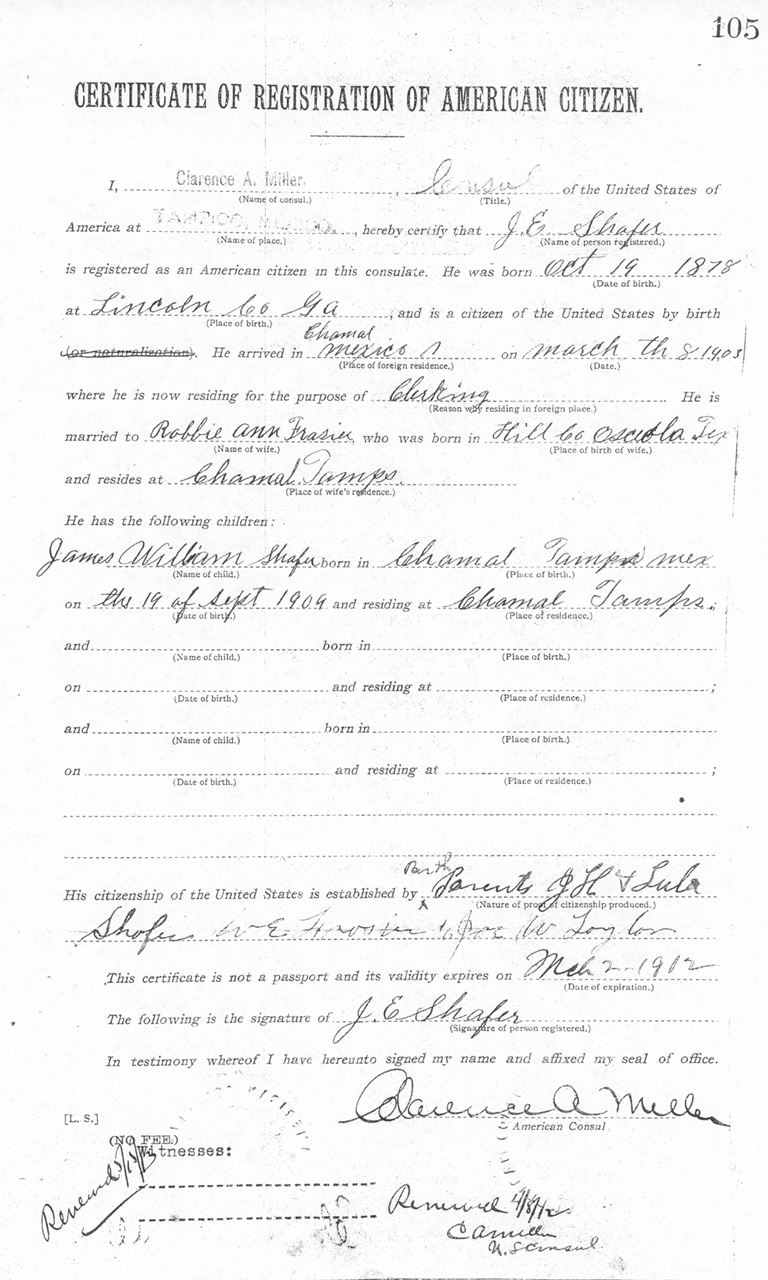 105
CERTIFICATE OF REGISTRATION OF AMERICAN CITIZEN.
I, Clarence A. Miller, Consul of the United States of
(Name of consul.) (Title.)
America at TAMPICO, MEXICO., hereby certify that J. E. Shafer
(Name of place.) (Name of person registered.)
is registered as an American citizen in this consulate. He was born Oct 19 1878
(Date of birth.)
at Lincoln Co Ga, and is a citizen of the United States by birth
(Place of birth.)
Chamal
(or naturalization). He arrived in mexico on march th 8 1903
(Place of foreign residence.) (Date.)
where he is now residing for the purpose of Clerking. He is
(Reason why residing in foreign place.)
married to Robbie Ann Frasier, who was born in Hill Co Osceola Tex
(Name of wife.) (Place of birth of wife.)
and resides at Chamal Tamps.
(Place of wife's residence.)
He has the following children:
James William Shafer born in Chamal Tamps mex
(Name of child.) (Place of birth.)
on the 19 of Sept 1909 and residing at Chamal Tamps.;
(Date of birth.) (Place of residence.)
and born in
(Name of child.) (Place of birth.)
on and residing at ;
(Date of birth.) (Place of residence.)
and born in
(Name of child.) (Place of birth.)
on and residing at ;
(Date of birth.) (Place of residence.)
Birth
His citizenship of the United States is established by Parents J H & Lula
(Nature of proof of citizenship produced.)
Shafer W E Frasier & W Taylor
This certificate is not a passport and its validity expires on Mch 2-1912
(Date of expiration.)
The following is the signature of J. E Shafer
(Signature of person registered.)
In testimony whereof I have hereunto signed my name and affixed my seal of office.
Clarence A Miller
[L. S.] American Consul
(NO FEE.)
Witnesses:
Renewed
Renewed 4/8/12
C A Miller
U.S Consul.